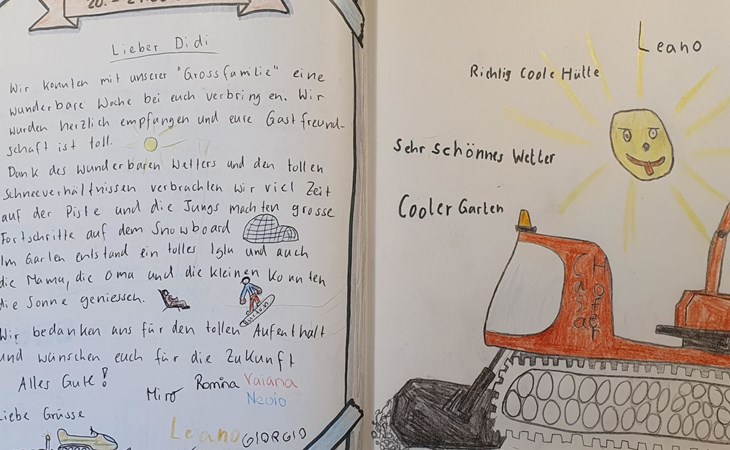 Lieber Didi
Wir konnten mit unserer "Grossfamilie" eine
wunderbare Woche bei euch verbringen. Wir
wurden herzlich empfangen und eure Gastfreund-
schaft ist toll.
Dank des wunderbaren Wetters und den tollen
Schneeverhältnissen verbrachten wir viel Zeit
auf der Piste und die Jungs machten grosse
Fortschritte auf dem Snowboard
Im Garten entstand ein tolles Iglu und auch
die Mama, die Oma und die kleinen konnten
die Sonne geniessen.
Wir bedanken uns für den tollen Aufenthalt
und wünschen euch für die Zukunft
Alles Gute!
Miro Romina Vaiana
Nevio
Liebe Grüsse
Leano GIORGIO
Leano
Richtig Coole Hütte
Sehr schönnes Wetter
Cooler Garten